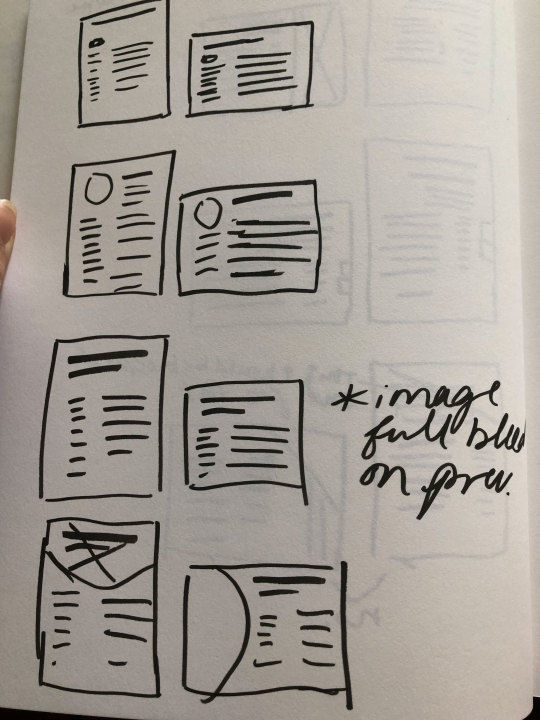 *image
full bleed
on prev.